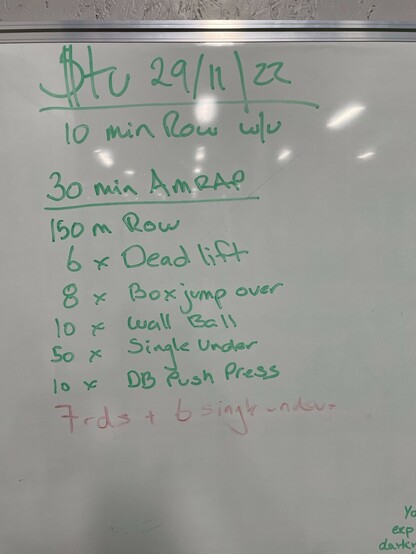 29/11/22
10 min Row w/u
30 min AMRAP
150 m Row
6 x Dead lift
8 x Box jump over
10 x Wall Ball
50 x Single Under
10 x DB Push Press
7 rds + 6 single
Yo
exp
darkn